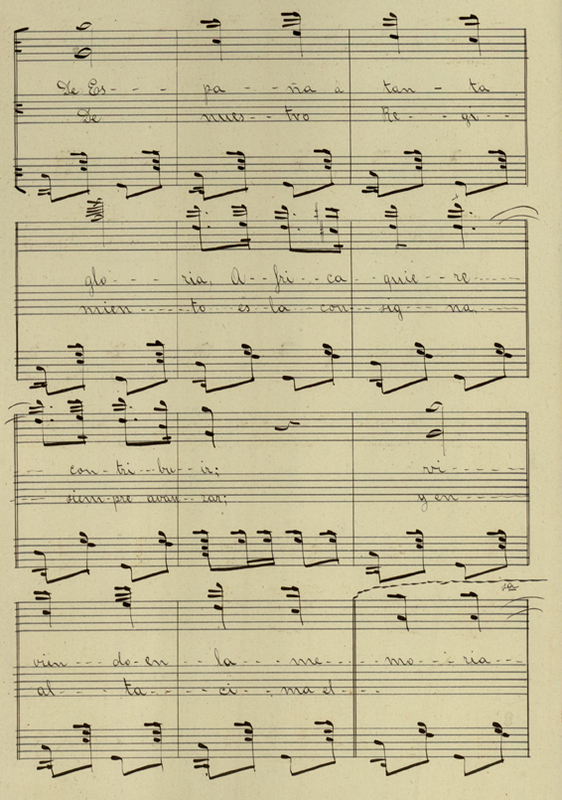 De Es - - - pa - - ña a tan - ta
De nues - - tro Re - - gi - -
glo - - - ria, A - fri - - ca quie - - re - - - -
mien - - - - - to es la con - - sig - - na - - - -
- - con - tri - bu - ir; vi - - - - -
- - - siem - pre avan - zar; y en - - - - -
vien - - - do - en - - la - - - me - - - mo - - ria - - -
al - - - ta - - - ci - - ma el - - - -